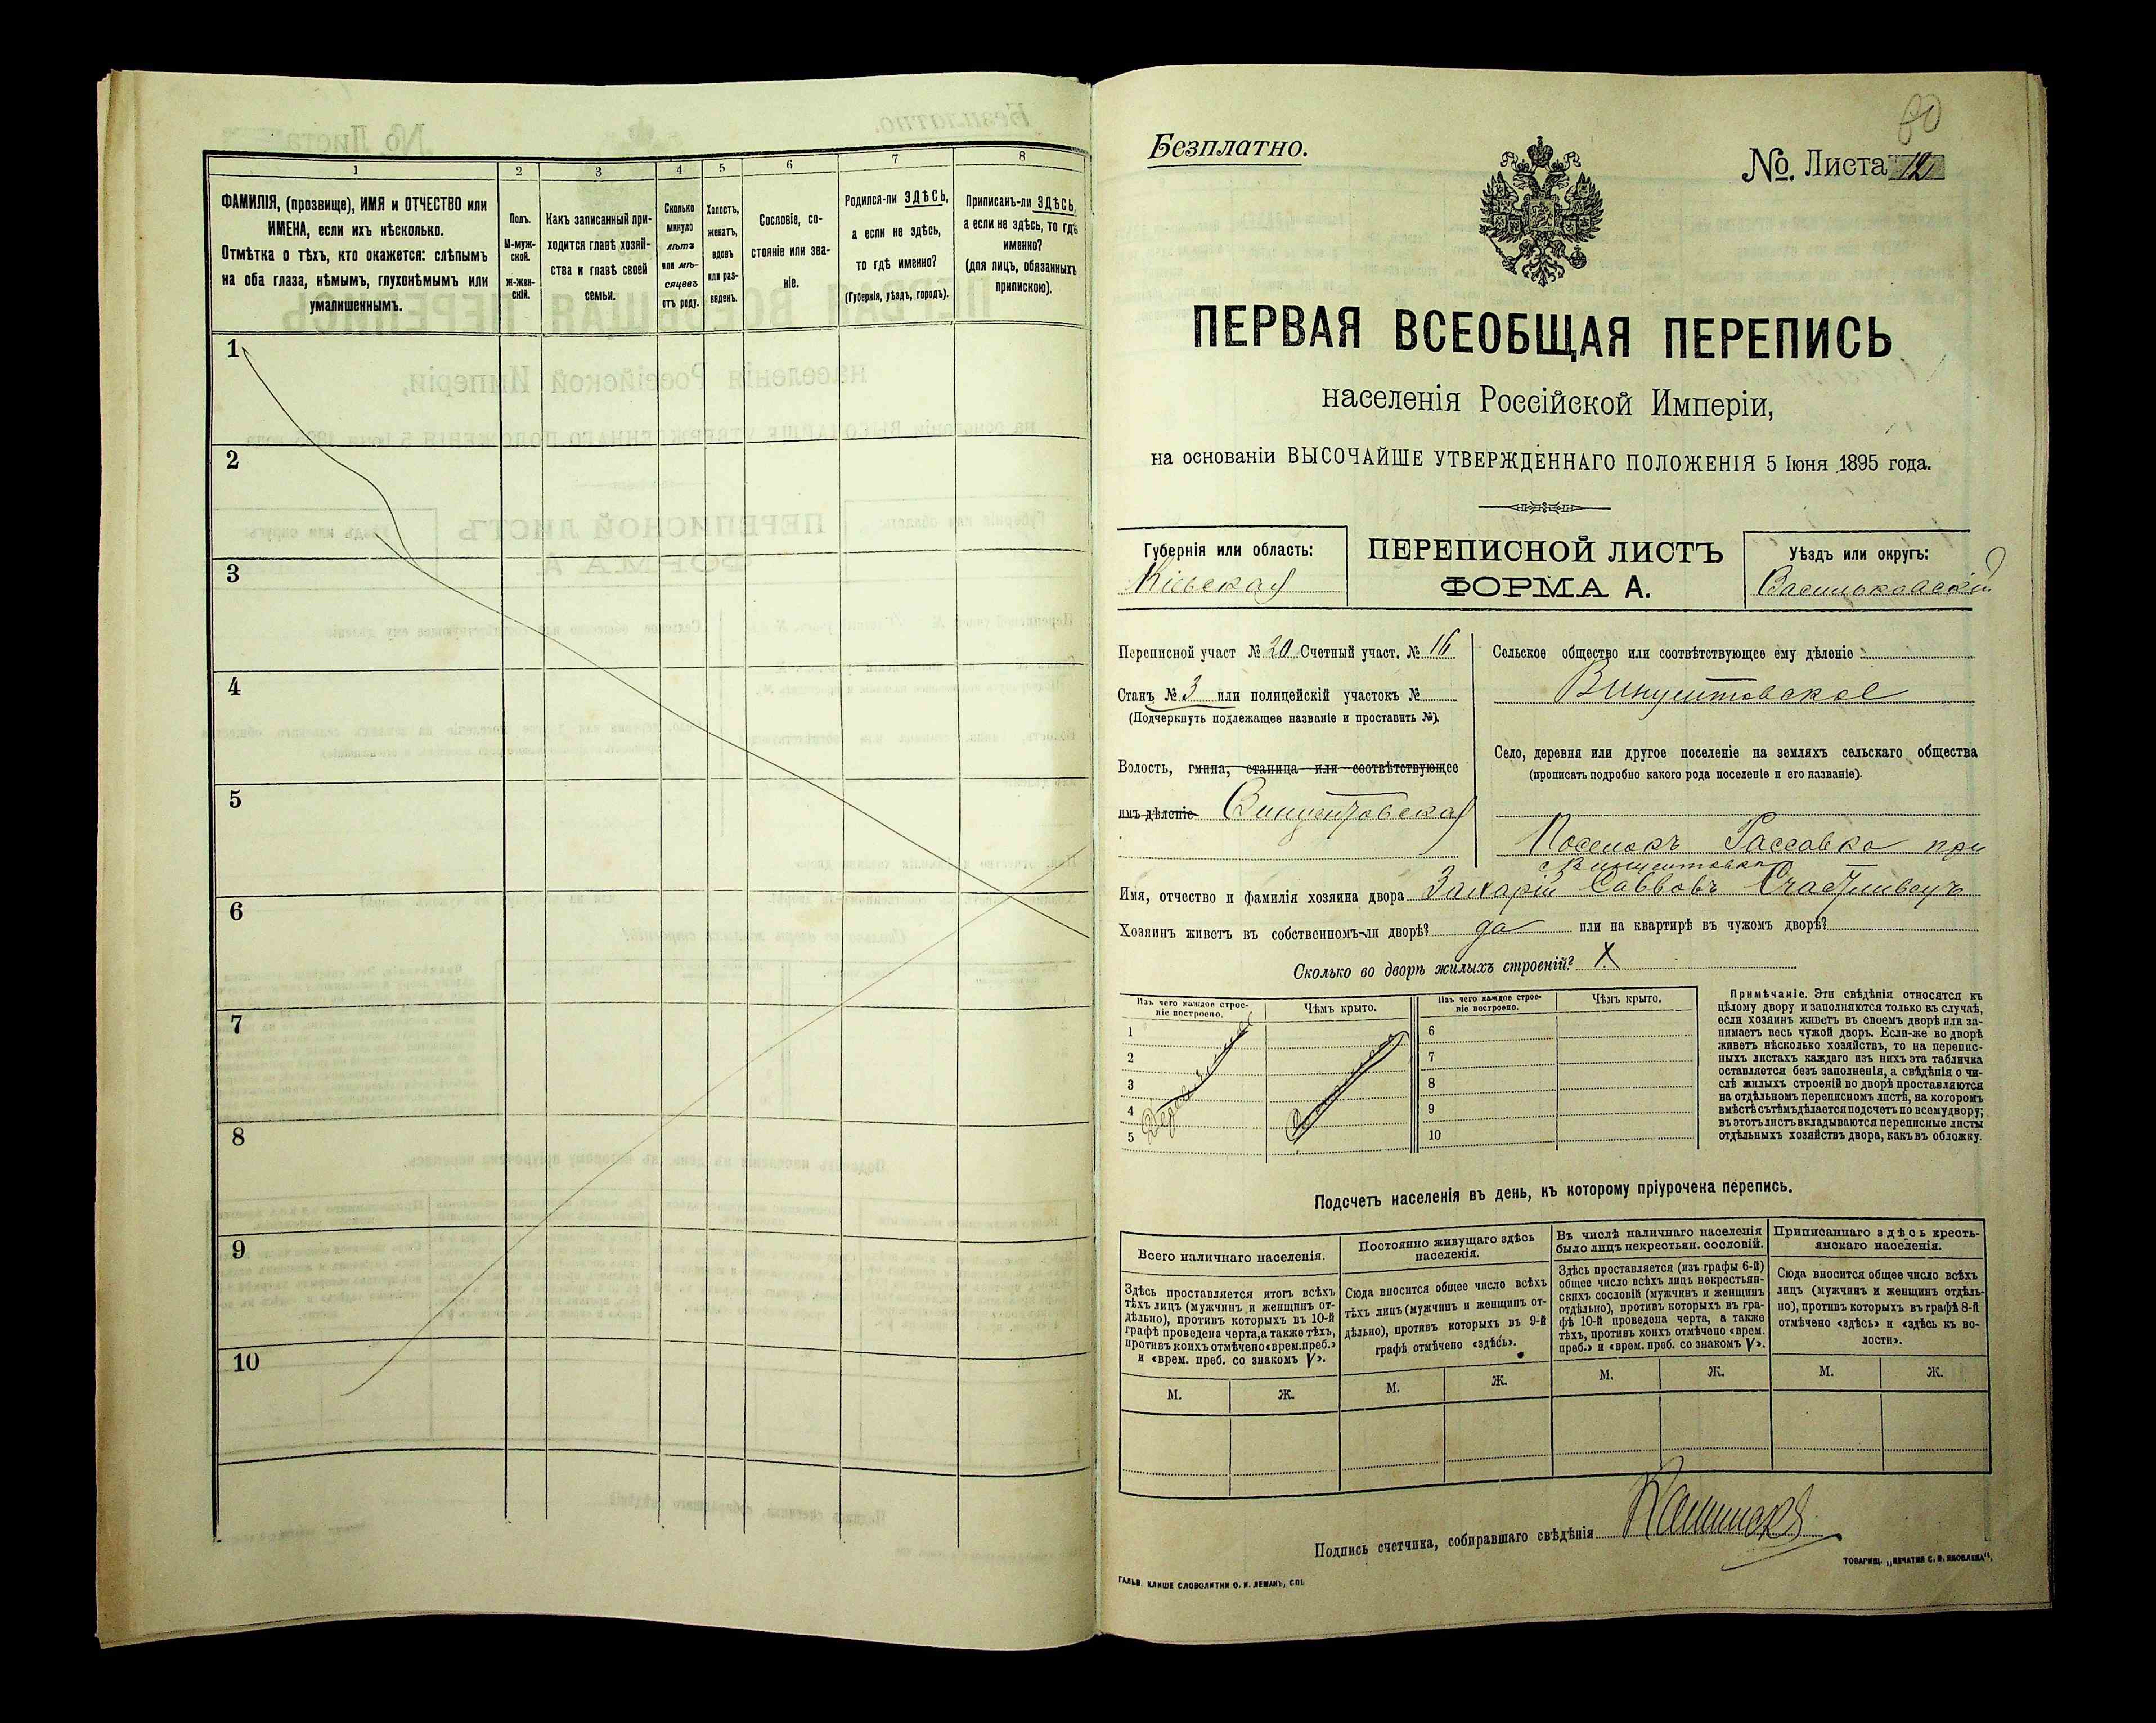 1 2 3 4 5 6 7 8
ФАМИЛІЯ, (прозвище), ИМЯ и ОТЧЕСТВО или
ИМЕНА, если ихъ нѣсколько.
Отмѣтка о тѣхъ, кто окажется: слѣпымъ
на оба глаза, нѣмымъ, глухонѣмымъ или
умалишеннымъ.
Полъ.
М-муж-
ской.
Ж-жен-
скій.
Какъ записанный при-
ходится главѣ хозяй-
ства и главѣ своей
семьи.
Сколько
минуло
лѣтъ
или мѣ-
сяцевъ
отъ роду.
Холостъ,
женатъ,
вдовъ
или раз-
веденъ.
Сословіе, со-
стояніе или зва-
ніе.
Родился-ли ЗДѢСЬ,
а если не здѣсь,
то гдѣ именно?
(Губернія, уѣздъ, городъ).
Приписанъ-ли ЗДѢСЬ,
а если не здѣсь, то гдѣ
именно?
(для лицъ, обязанныхъ
припискою).
1
2
3
4
5
6
7
8
9
10
80
Безплатно.
№. Листа 12
ПЕРВАЯ ВСЕОБЩАЯ ПЕРЕПИСЬ
населенія Россійской Имперіи,
на основаніи ВЫСОЧАЙШЕ УТВЕРЖДЕННАГО ПОЛОЖЕНІЯ 5 Іюня 1895 года.
Губернія или область:
Кіевская
ПЕРЕПИСНОЙ ЛИСТЪ
ФОРМА А.
Уѣздъ или округъ:
Васильковскій
Переписной участ № 20 Счетный участ. № 16
Станъ № 3 или полицейскій участокъ №
(Подчеркнуть подлежащее названіе и проставить №).
Волость, гмина, станица или соотвѣтствующее
имъ дѣленіе Винцентовская
Сельское общество или соотвѣтствующее ему дѣленіе
Винцентовское
Село, деревня или другое поселеніе на земляхъ сельскаго общества
(прописать подробно какого рода поселеніе и его названіе).
Поселокъ Гассовка при
с Винцентовка
Имя, отчество и фамилія хозяина двора Захарій Саввовъ Счастливецъ
Хозяинъ живетъ въ собственномъ-ли дворѣ? да или на квартирѣ въ чужомъ дворѣ?
Сколько во дворѣ жилыхъ строеній? X
Изъ чего каждое строе-
ніе построено.
Чѣмъ крыто.
Изъ чего каждое строе-
ніе построено.
Чѣмъ крыто.
1 6
2 7
3 8
4 9
5 10
Примѣчаніе. Эти свѣдѣнія относятся къ
цѣлому двору и заполняются только въ случаѣ,
если хозяинъ живетъ въ своемъ дворѣ или за-
нимаетъ весь чужой дворъ. Если-же во дворѣ
живетъ нѣсколько хозяйствъ, то на перепис-
ныхъ листахъ каждаго изъ нихъ эта табличка
оставляется безъ заполненія, а свѣдѣнія о чи-
слѣ жилыхъ строеній во дворѣ проставляются
на отдѣльномъ переписномъ листѣ, на которомъ
вмѣстѣ съ тѣмъ дѣлается подсчетъ по всему двору;
въ этотъ листъ вкладываются переписные листы
отдѣльныхъ хозяйствъ двора, какъ въ обложку.
Подсчетъ населенія въ день, къ которому пріурочена перепись.
Всего наличнаго населенія.
Здѣсь проставляется итогъ всѣхъ
тѣхъ лицъ (мужчинъ и женщинъ от-
дѣльно), противъ которыхъ въ 10-й
графѣ проведена черта, а также тѣхъ,
противъ коихъ отмѣчено «врем. преб.»
и «врем. преб. со знакомъ V».
Постоянно живущаго здѣсь
населенія.
Сюда вносится общее число всѣхъ
тѣхъ лицъ (мужчинъ и женщинъ от-
дѣльно), противъ которыхъ въ 9-й
графѣ отмѣчено «здѣсь».
Въ числѣ наличнаго населенія
было лицъ некрестьян. сословій.
Здѣсь проставляется (изъ графы 6-й)
общее число всѣхъ лицъ некрестьян-
скихъ сословій (мужчинъ и женщинъ
отдѣльно), противъ которыхъ въ гра-
фѣ 10-й проведена черта, а также
тѣхъ, противъ коихъ отмѣчено «врем.
преб.» и «врем. преб. со знакомъ V».
Приписаннаго здѣсь кресть-
янскаго населенія.
Сюда вносится общее число всѣхъ
лицъ (мужчинъ и женщинъ отдѣль-
но), противъ которыхъ въ графѣ 8-й
отмѣчено «здѣсь» и «здѣсь къ во-
лости».
М. Ж. М. Ж. М. Ж. М. Ж.
Подпись счетчика, собиравшаго свѣдѣнія
ГАЛЬВ. КЛИШЕ СЛОВОЛИТНИ О. И. ЛЕМАНЪ, СПБ.
ТОВАРИЩ. „ПЕЧАТНЯ С. П. ЯКОВЛЕВА“.